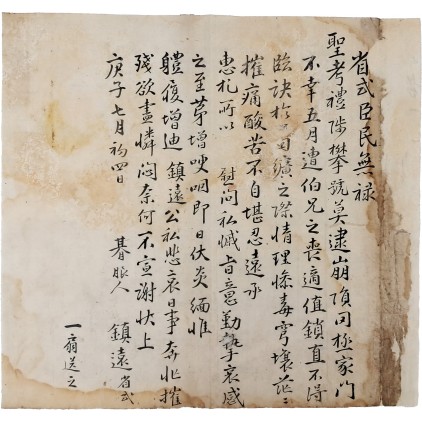 省式臣民無祿
聖考禮陟攀號莫逮崩隕同極家門
不幸五月遭伯兄之喪適值鎖直不得
臨訣於屬纊之際情理慘毒穹壤茫〻
摧痛酸苦不自堪忍遠承
惠札所以 慰問私慽旨意勤摯哀感
之至茅增哽咽即日伏炎緬惟
體履增迪 鎮遠公私悲哀日事奔忙摧
殘欲盡憐悶奈何不宣謝狀上
庚子七月初四日 朞服人 鎮遠 省式
一扇送之